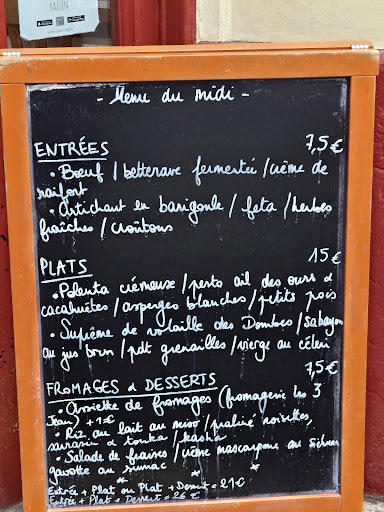 - Menu du midi -
ENTRÉES 7,5€
• Bœuf / betterave fermentée / crème de
raifort
• Artichaut en barigoule / feta / herbes
fraîches / croûtons
PLATS 15€
• Polenta crémeuse / pesto ail des ours &
cacahuètes / asperges blanches / petits pois
• Suprême de volaille des Dombes / sabayon
au jus brun / pdt grenailles / vierge au céleri
FROMAGES & DESSERTS 7,5€
• Assiette de fromages (fromagerie les 3
Jean) +1€
• Riz au lait au miso / praliné noisettes,
sarrasin & tonka / kasha
• Salade de fraises / crème mascarpone au
gavotte au sumac
Entrée + Plat ou Plat + Dessert = 21€
Entrée + Plat + Dessert = 26€